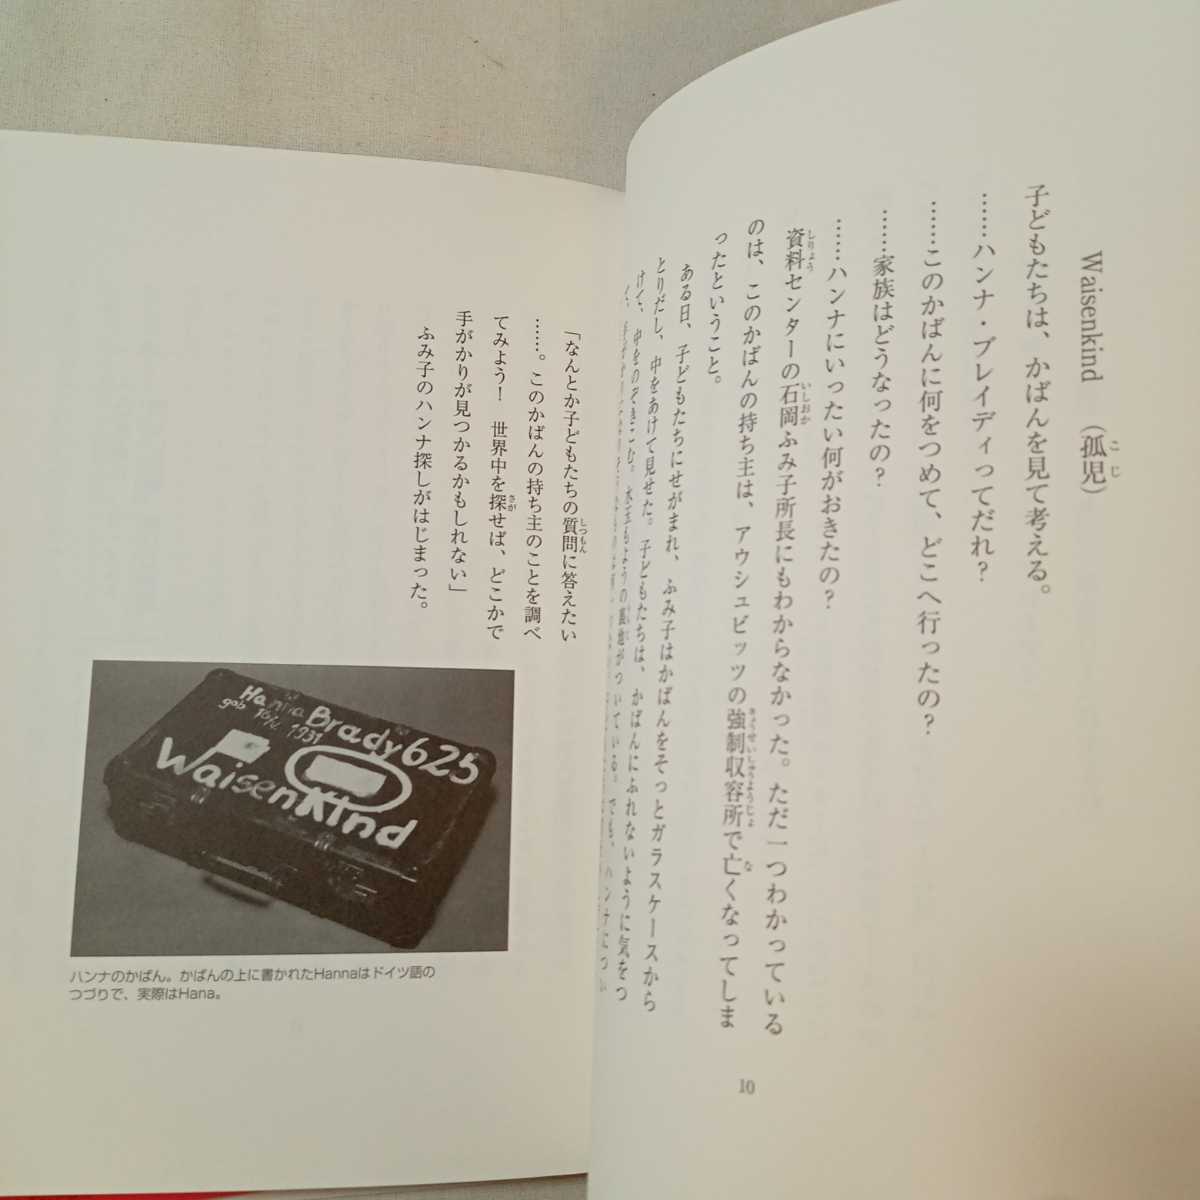 こじ
Waisenkind （孤児）
子どもたちは、かばんを見て考える。
……ハンナ・ブレイディってだれ？
……このかばんに何をつめて、どこへ行ったの？
……家族はどうなったの？
……ハンナにいったい何がおきたの？
しりょう いしおか
資料センターの石岡ふみ子所長にもわからなかった。ただ一つわかっている
きょうせいしゅうようじょ な
のは、このかばんの持ち主は、アウシュビッツの強制収容所で亡くなってしま
ったということ。
ある日、子どもたちにせがまれ、ふみ子はかばんをそっとガラスケースから
とりだし、中をあけて見せた。子どもたちは、かばんにふれないように気をつ
けて、中をのぞきこむ。水玉もようの裏地がついている。でも、ハンナについ
10
しつもん
「なんとか子どもたちの質問に答えたい
……。このかばんの持ち主のことを調べ
さが
てみよう！　世界中を探せば、どこかで
手がかりが見つかるかもしれない」
ふみ子のハンナ探しがはじまった。
Hanna Brady 625
geb 1931
Waisenkind
ハンナのかばん。かばんの上に書かれたHannaはドイツ語の
つづりで、実際はHana。